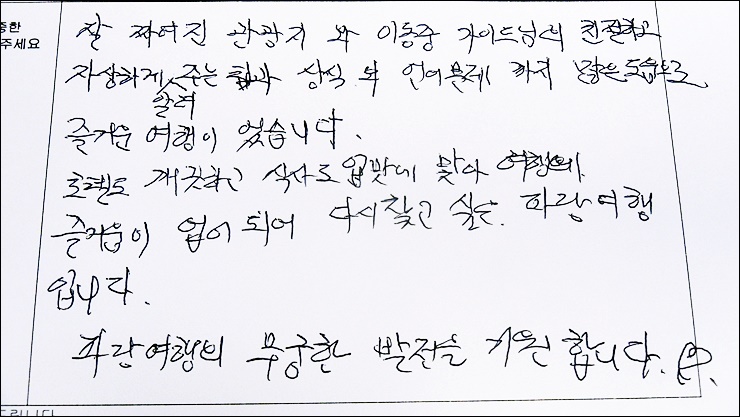 중한
주세요
잘 짜여진 관광지 와 이동중 가이드님의 친절하고
자상하게 알려 주는 팁과 상식 및 언어문제 까지 많은도움으로
즐거운 여행이 었습니다.
호텔도 깨끗하고 식사도 입맛에 맞아 여행의
즐거움이 업이 되어 다시찾고 싶은 파랑여행
입니다.
파랑여행의 무궁한 발전을 기원 합니다.